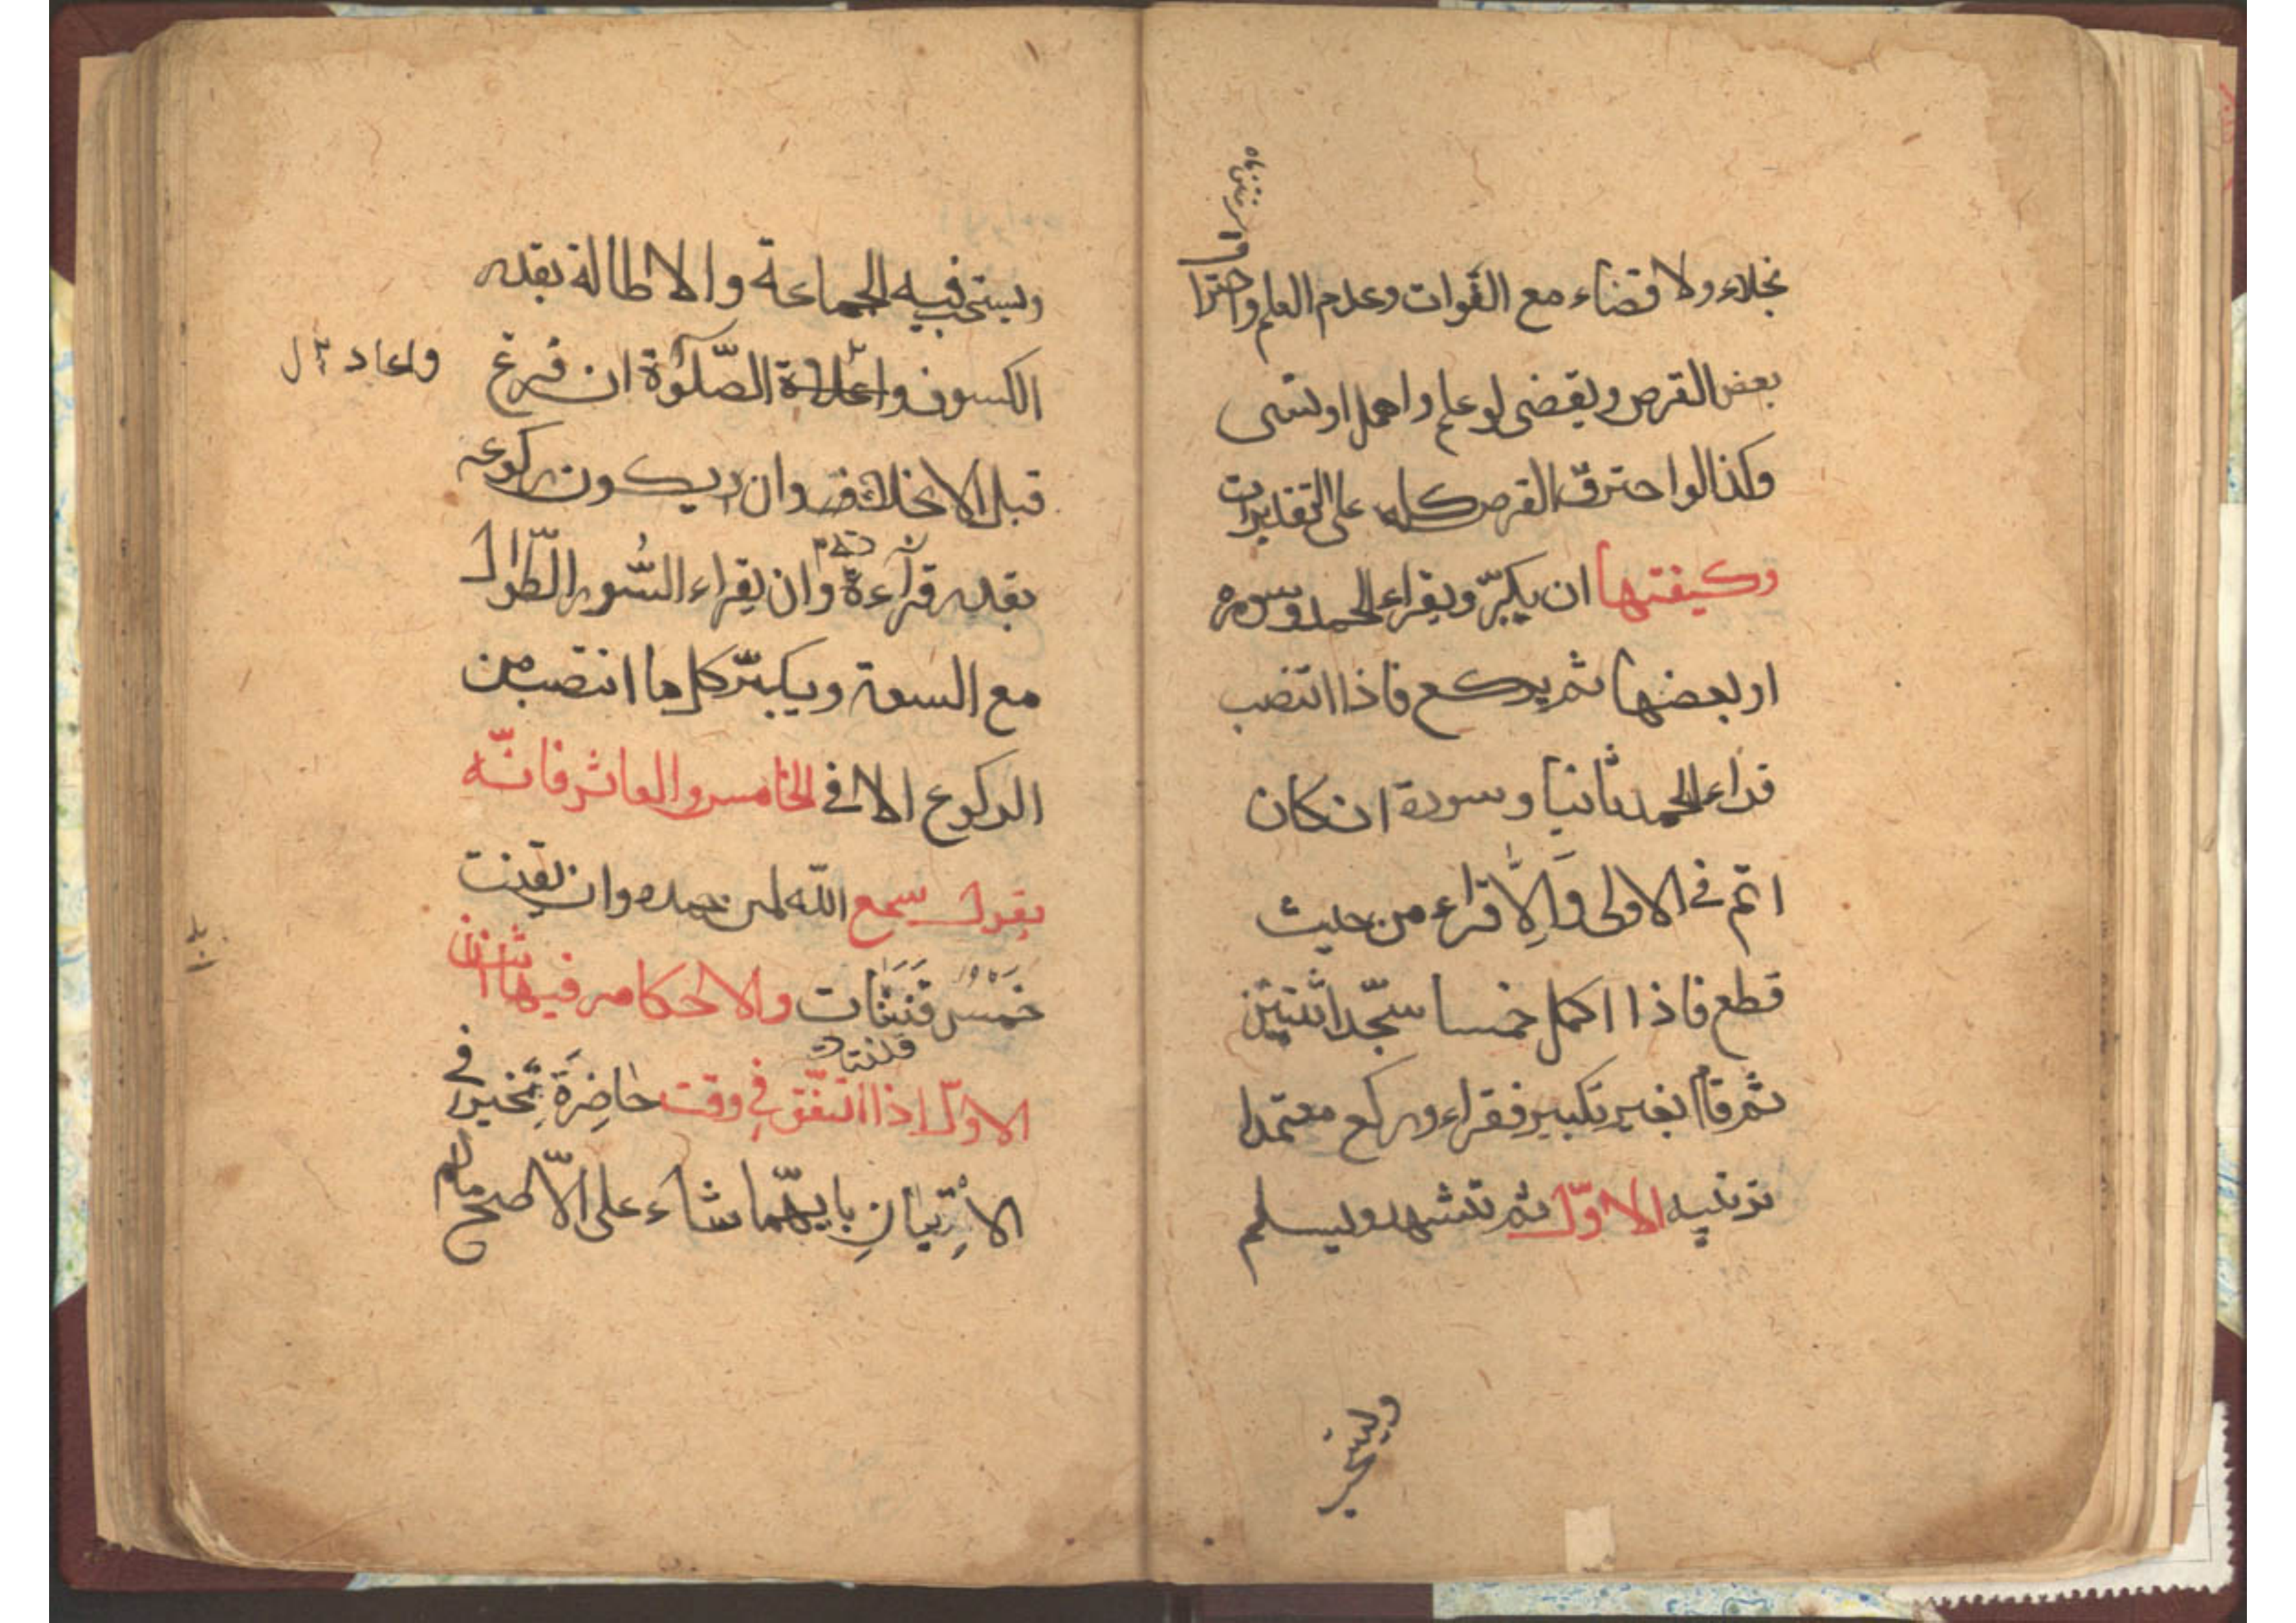 نجلاء ولا قضاء مع الفوات وعدم العلم واحترا
بعض القرص ويقضى لو علم واهمل او نسى
وكذا لو احترق القرص كله على التقديرات
وكيفتها ان يكبّر ويقراء الحمد وسوره
او بعضها ثم يركع فاذا انتصب
قراء الحمد ثانيا وسورة ان كان
اتم فى الاولى وَاِلّا قراء من حيث
قطع فاذا اكمل خمسا سجّد اثنتين
ثم قام بغير تكبير فقراء وركع معتمدا
ترتيبه الاوّل ثم تتشهد ويسلم
ويستحب
ويستحب فيه الجماعة والاطالة بقدر
الكسوف واعادة الصّلوٰة ان فرغ
واعاد
قبل الانجلاء وان يكون ركوعه
بقدر قرآءة وان يقراء السُّور الطّوال
مع السعة ويكبّر كل ما انتصب من
الركوع الا فى الخامس والعاشر فانّه
يقول سمع الله لمن حمده وان يقنت
خَمْسَ قَنَتَات والاحكام فيها اثنان
قنتات
الاوّل اذا اتّفق فى وقت حاضِرَة تخير فى
الاِتيانِ بايهّما شاء على الاصح مام